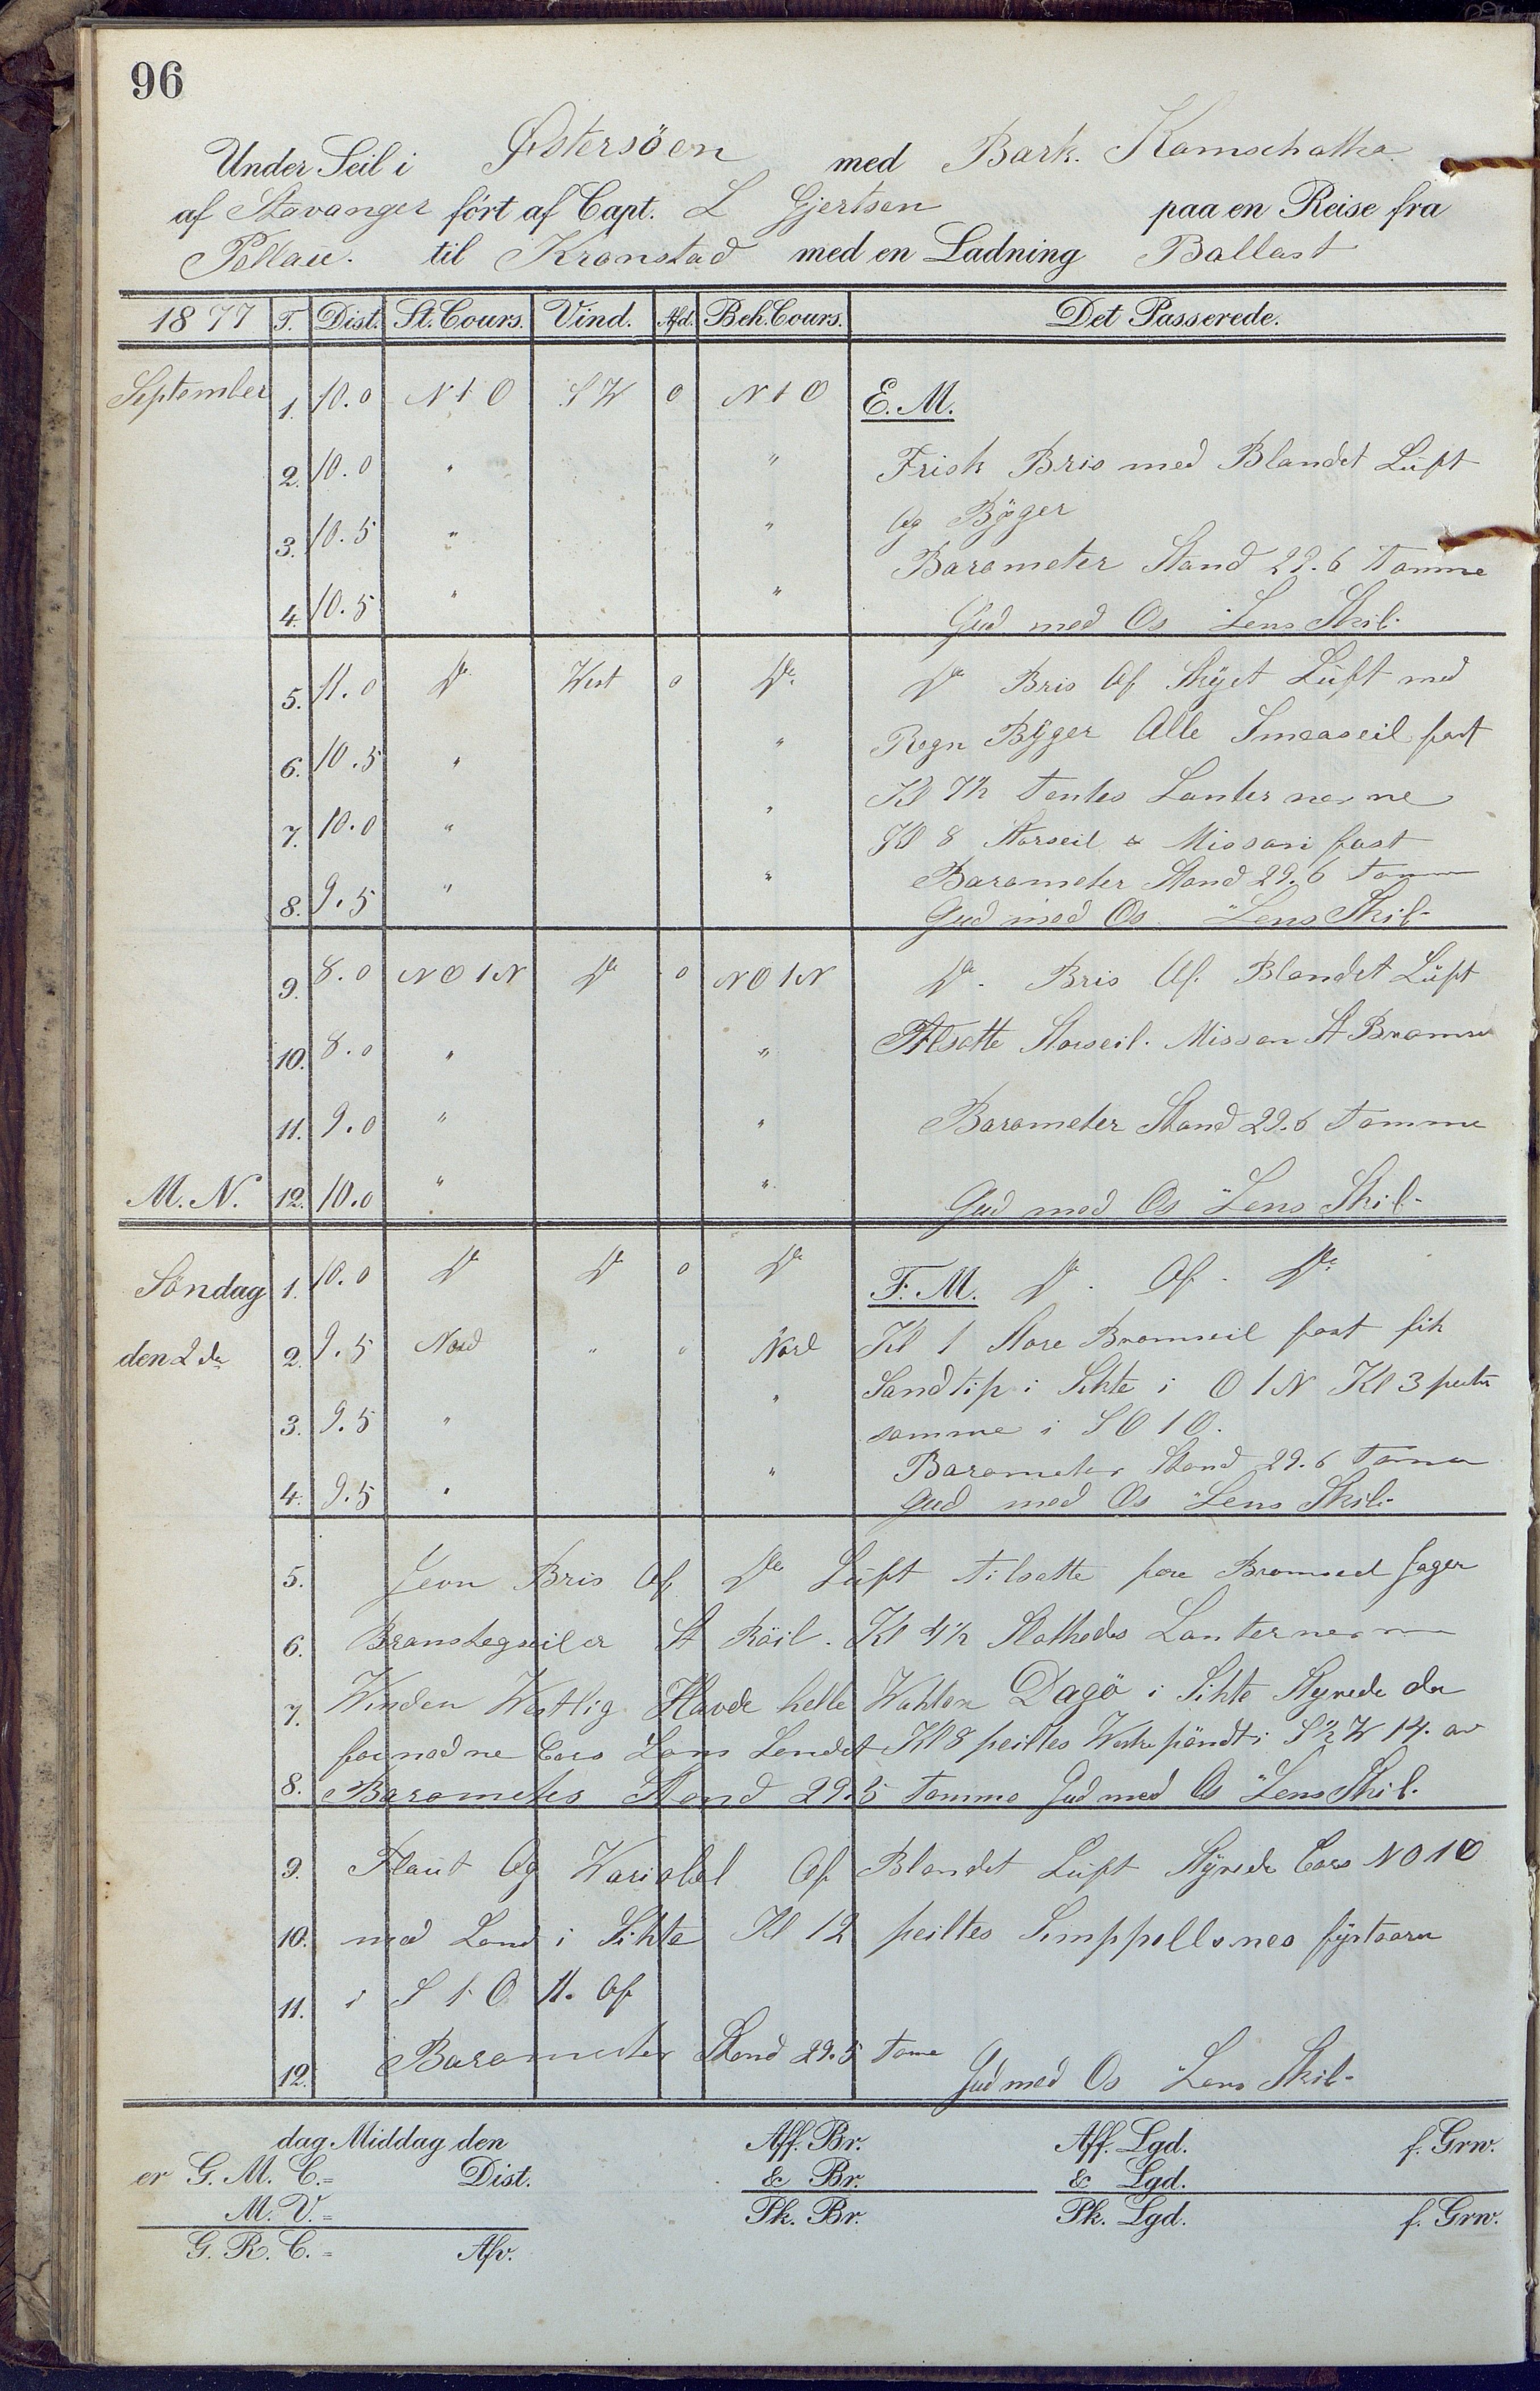 96
Under Seil i Østersöen med Bark. Kamschatka
af Stavanger fört af Capt. L Gjertsen paa en Reise fra
Pellau. til Kronstad med en Ladning Ballast
1877 T. Dist. St. Cours. Vind. Afd. Beh. Cours. Det Passerede.
September 1. 10.0 N t O S W 0 N t O E. M.
2. 10.0 " " Frisk Bris med Blandet Lüft
3. 10.5 " " Og Byger
Barometer Stand 29.6 Tomme
4. 10.5 " " Gud med Os "Lens Skib"
5. 11.0 Do West 0 Do. Do Bris Af Skyet Lüft med
6. 10.5 " " Regn Byger Alle Smaaseil fast
Kl 7½ Tentes Lanternerne
7. 10.0 " " Kl 8 Storseil & Missan fast
Barometer Stand 29.6 Tomme
8. 9.5 " " Gud med Os "Lens Skib"
9. 8.0 N O t N Do 0 N O t N Do. Bris Af. Blandet Lüft
10. 8.0 " " Tilsatte Storseil. Missan St Bramse
11. 9.0 " " Barometer Stand 29.6 Tomme
M. N. 12. 10.0 " " Gud med Os "Lens Skib"
Söndag 1. 10.0 Do Do 0 Do F. M. Do. Af. Do.
den 2 de 2. 9.5 Nord " " Nord Kl 1 Store Bramseil fast fik
Landtip i Sikte i O t N Kl 3
3. 9.5 " " samme i S O t O.
Barometer Stand 29.6 Tomme
4. 9.5 " " Gud med Os "Lens Skib"
5. Jevn Bris Af Do Lüft tilsatte fore Bramseil Jager
6. Bramstegseiler St Röil. Kl 4½ Slukkedes Lanternerne
7. Vinden Westlig Havde helle Wakten Dagö i Sikte Styrede de
fornødne Cors Lans Landet Kl 8 peiltes Westre pöndt i S ½ W 14. av
8. Barometer Stand 29.5 Tomme Gud med Os "Lens Skib"
9. Flaut Og Variabel Af Blandet Lüft Styrede Cors N O t O
10. med Land i Sikte Kl 12 peiltes Simppellsnes fyrtaarn
11. i S t O 11. Af
12. Barometer Stand 29.5 Tome Gud med Os "Lens Skib"
dag Middag den Aff. Br. Aff. Lgd. f. Grw.
er G. M. C.= Dist. & Br. & Lgd.
M. V.= Pk. Br. Pk. Lgd. f. Grw.
G. R. C.= Afv.